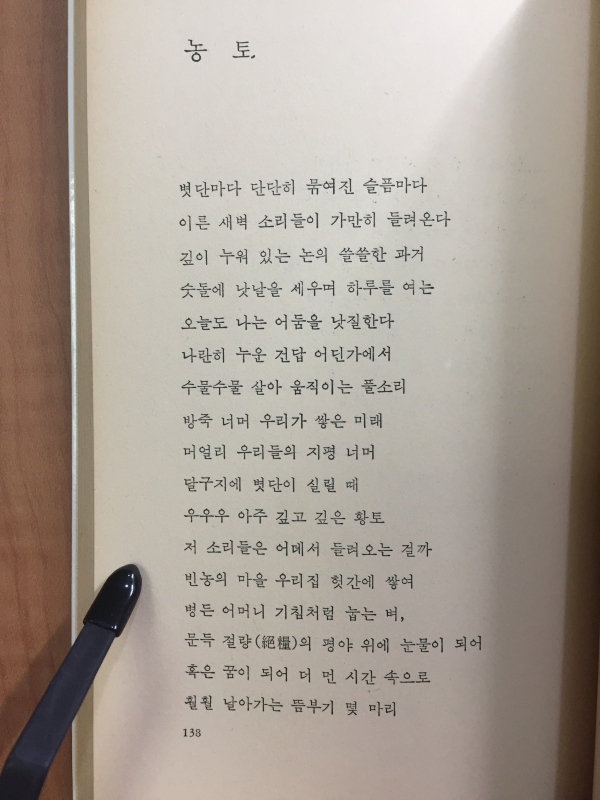 농 토
볏단마다 단단히 묶여진 슬픔마다
이른 새벽 소리들이 가만히 들려온다
깊이 누워 있는 논의 쓸쓸한 과거
숫돌에 낫날을 세우며 하루를 여는
오늘도 나는 어둠을 낫질한다
나란히 누운 건답 어딘가에서
수물수물 살아 움직이는 풀소리
방죽 너머 우리가 쌓은 미래
머얼리 우리들의 지평 너머
달구지에 볏단이 실릴 때
우우우 아주 깊고 깊은 황토
저 소리들은 어데서 들려오는 걸까
빈농의 마을 우리집 헛간에 쌓여
병든 어머니 기침처럼 눕는 벼,
문득 절량(絕糧)의 평야 위에 눈물이 되어
혹은 꿈이 되어 더 먼 시간 속으로
훨훨 날아가는 뜸부기 몇 마리
138